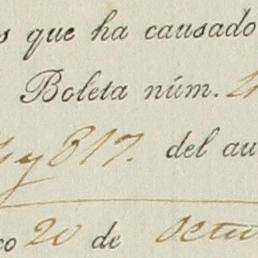 s que ha causado
Boleta núm.
y 817. del au
co 20 de Octu